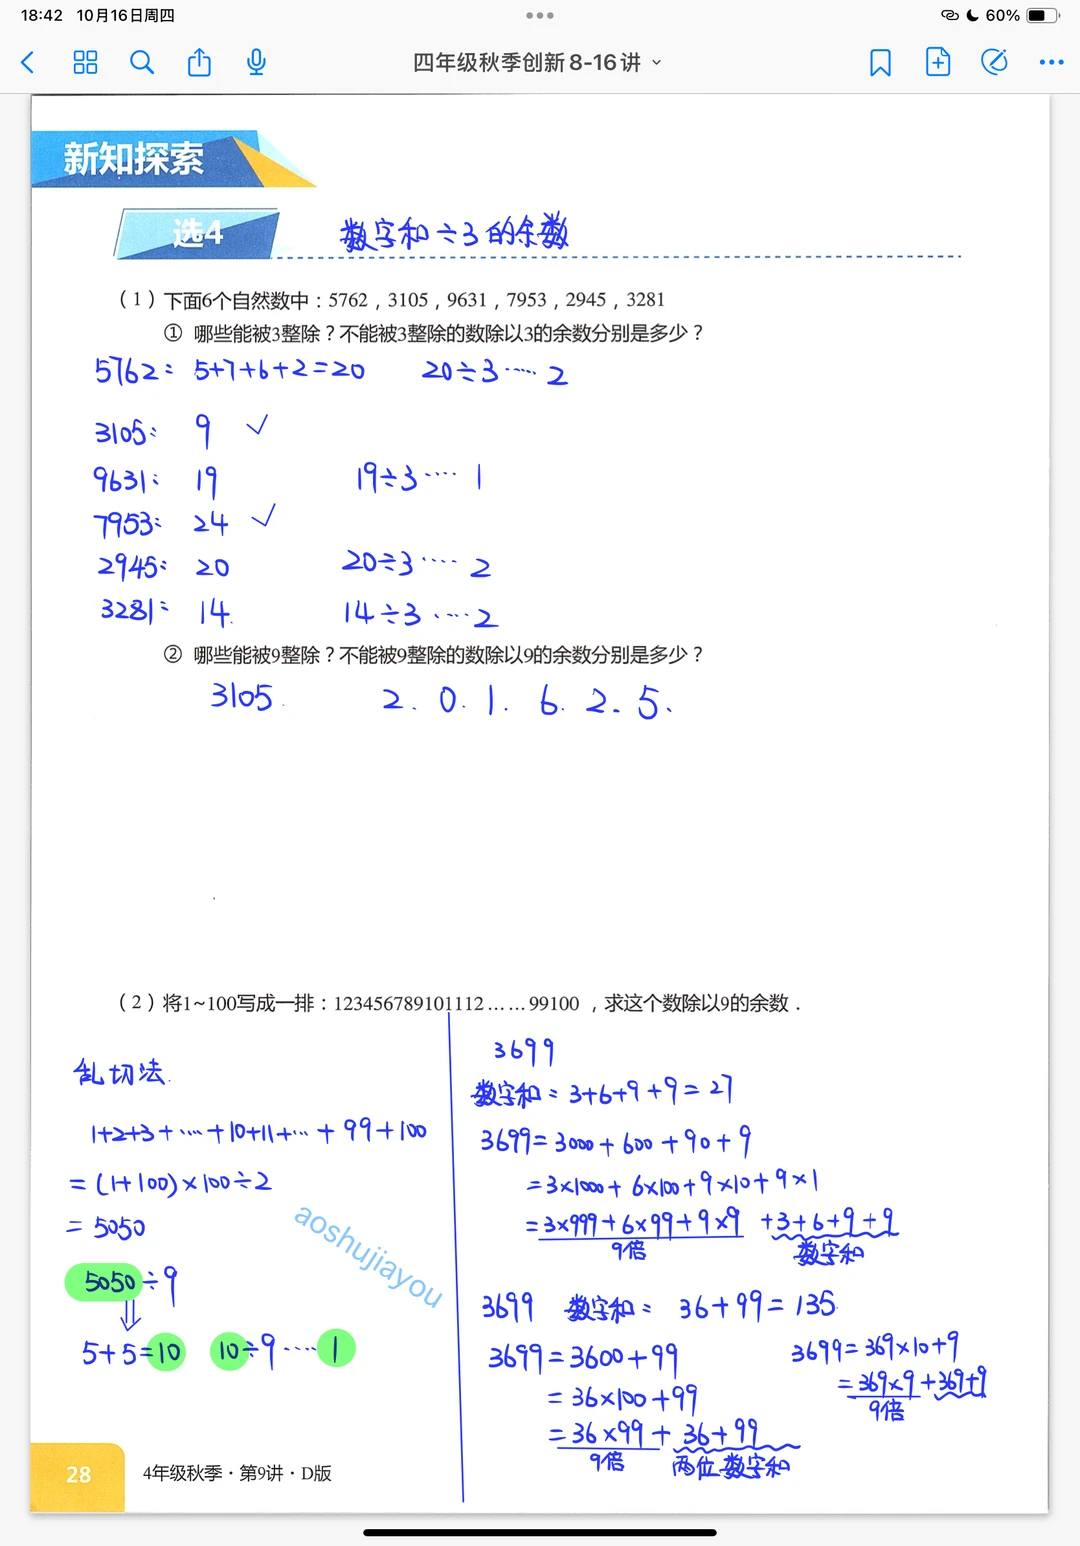 18:42 10月16日周四
60%
四年级秋季创新8-16讲
新知探索
选4
数字和÷3的余数
(1)下面6个自然数中:5762,3105,9631,7953,2945,3281
① 哪些能被3整除?不能被3整除的数除以3的余数分别是多少?
5762: 5+7+6+2=20 20÷3……2
3105: 9 ✓
9631: 19 19÷3……1
7953: 24 ✓
2945: 20 20÷3……2
3281: 14 14÷3……2
② 哪些能被9整除?不能被9整除的数除以9的余数分别是多少?
3105. 2. 0. 1. 6. 2. 5.
(2)将1~100写成一排:123456789101112……99100,求这个数除以9的余数.
乱切法.
1+2+3+……+10+11+…+99+100
=(1+100)×100÷2
=5050
5050÷9
⇓
5+5=10 10÷9……1
3699
数字和=3+6+9+9=27
3699=3000+600+90+9
=3×1000+6×100+9×10+9×1
=3×999+6×99+9×9+3+6+9+9
9倍 数字和
3699 数字和=36+99=135
3699=3600+99
=36×100+99
=36×99+36+99
9倍 两位数字和
3699=369×10+9
=369×9+369+9
9倍
aoshujiayou
28
4年级秋季·第9讲·D版